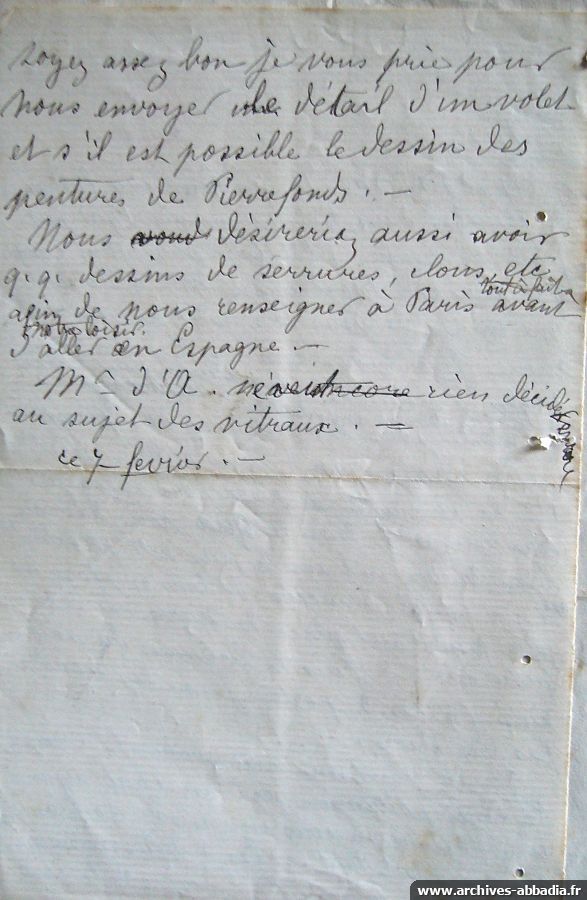 soyez assez bon je vous prie pour
nous envoyer le détail d'un volet
et s'il est possible le dessin des
pentures de Pierrefonds. —
Nous vous désirerions aussi avoir
q.q. dessins de serrures, clous, etc
tout à fait à
afin de nous renseigner à Paris avant
notre loisir.
d'aller en Espagne —
Mr d'A. rien décidé
encore
au sujet des vitraux. —
ce 7 fevrier. —
www.archives-abbadia.fr